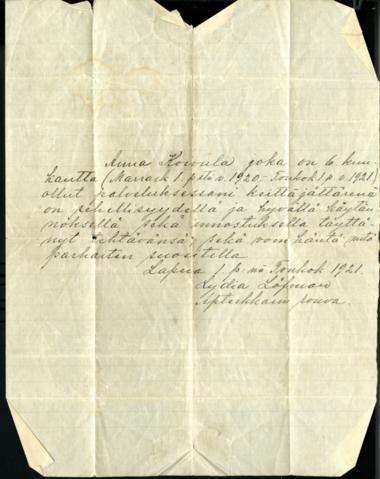 Anna Koivula joka on 6 kuu-
kautta (Marrask 1 p:stä v. 1920 - Toukok 1 p v. 1921)
ollut palveluksessani keittäjättärenä
on rehellisyydellä ja hyvällä käytän-
nöksellä sekä innostuksella täyttä-
nyt tehtävänsä, sekä voin häntä mitä
parhaiten suositella
Lapua 1 p:nä Toukok 1921.
Lydia Löfman
Aptekkarin rouva.